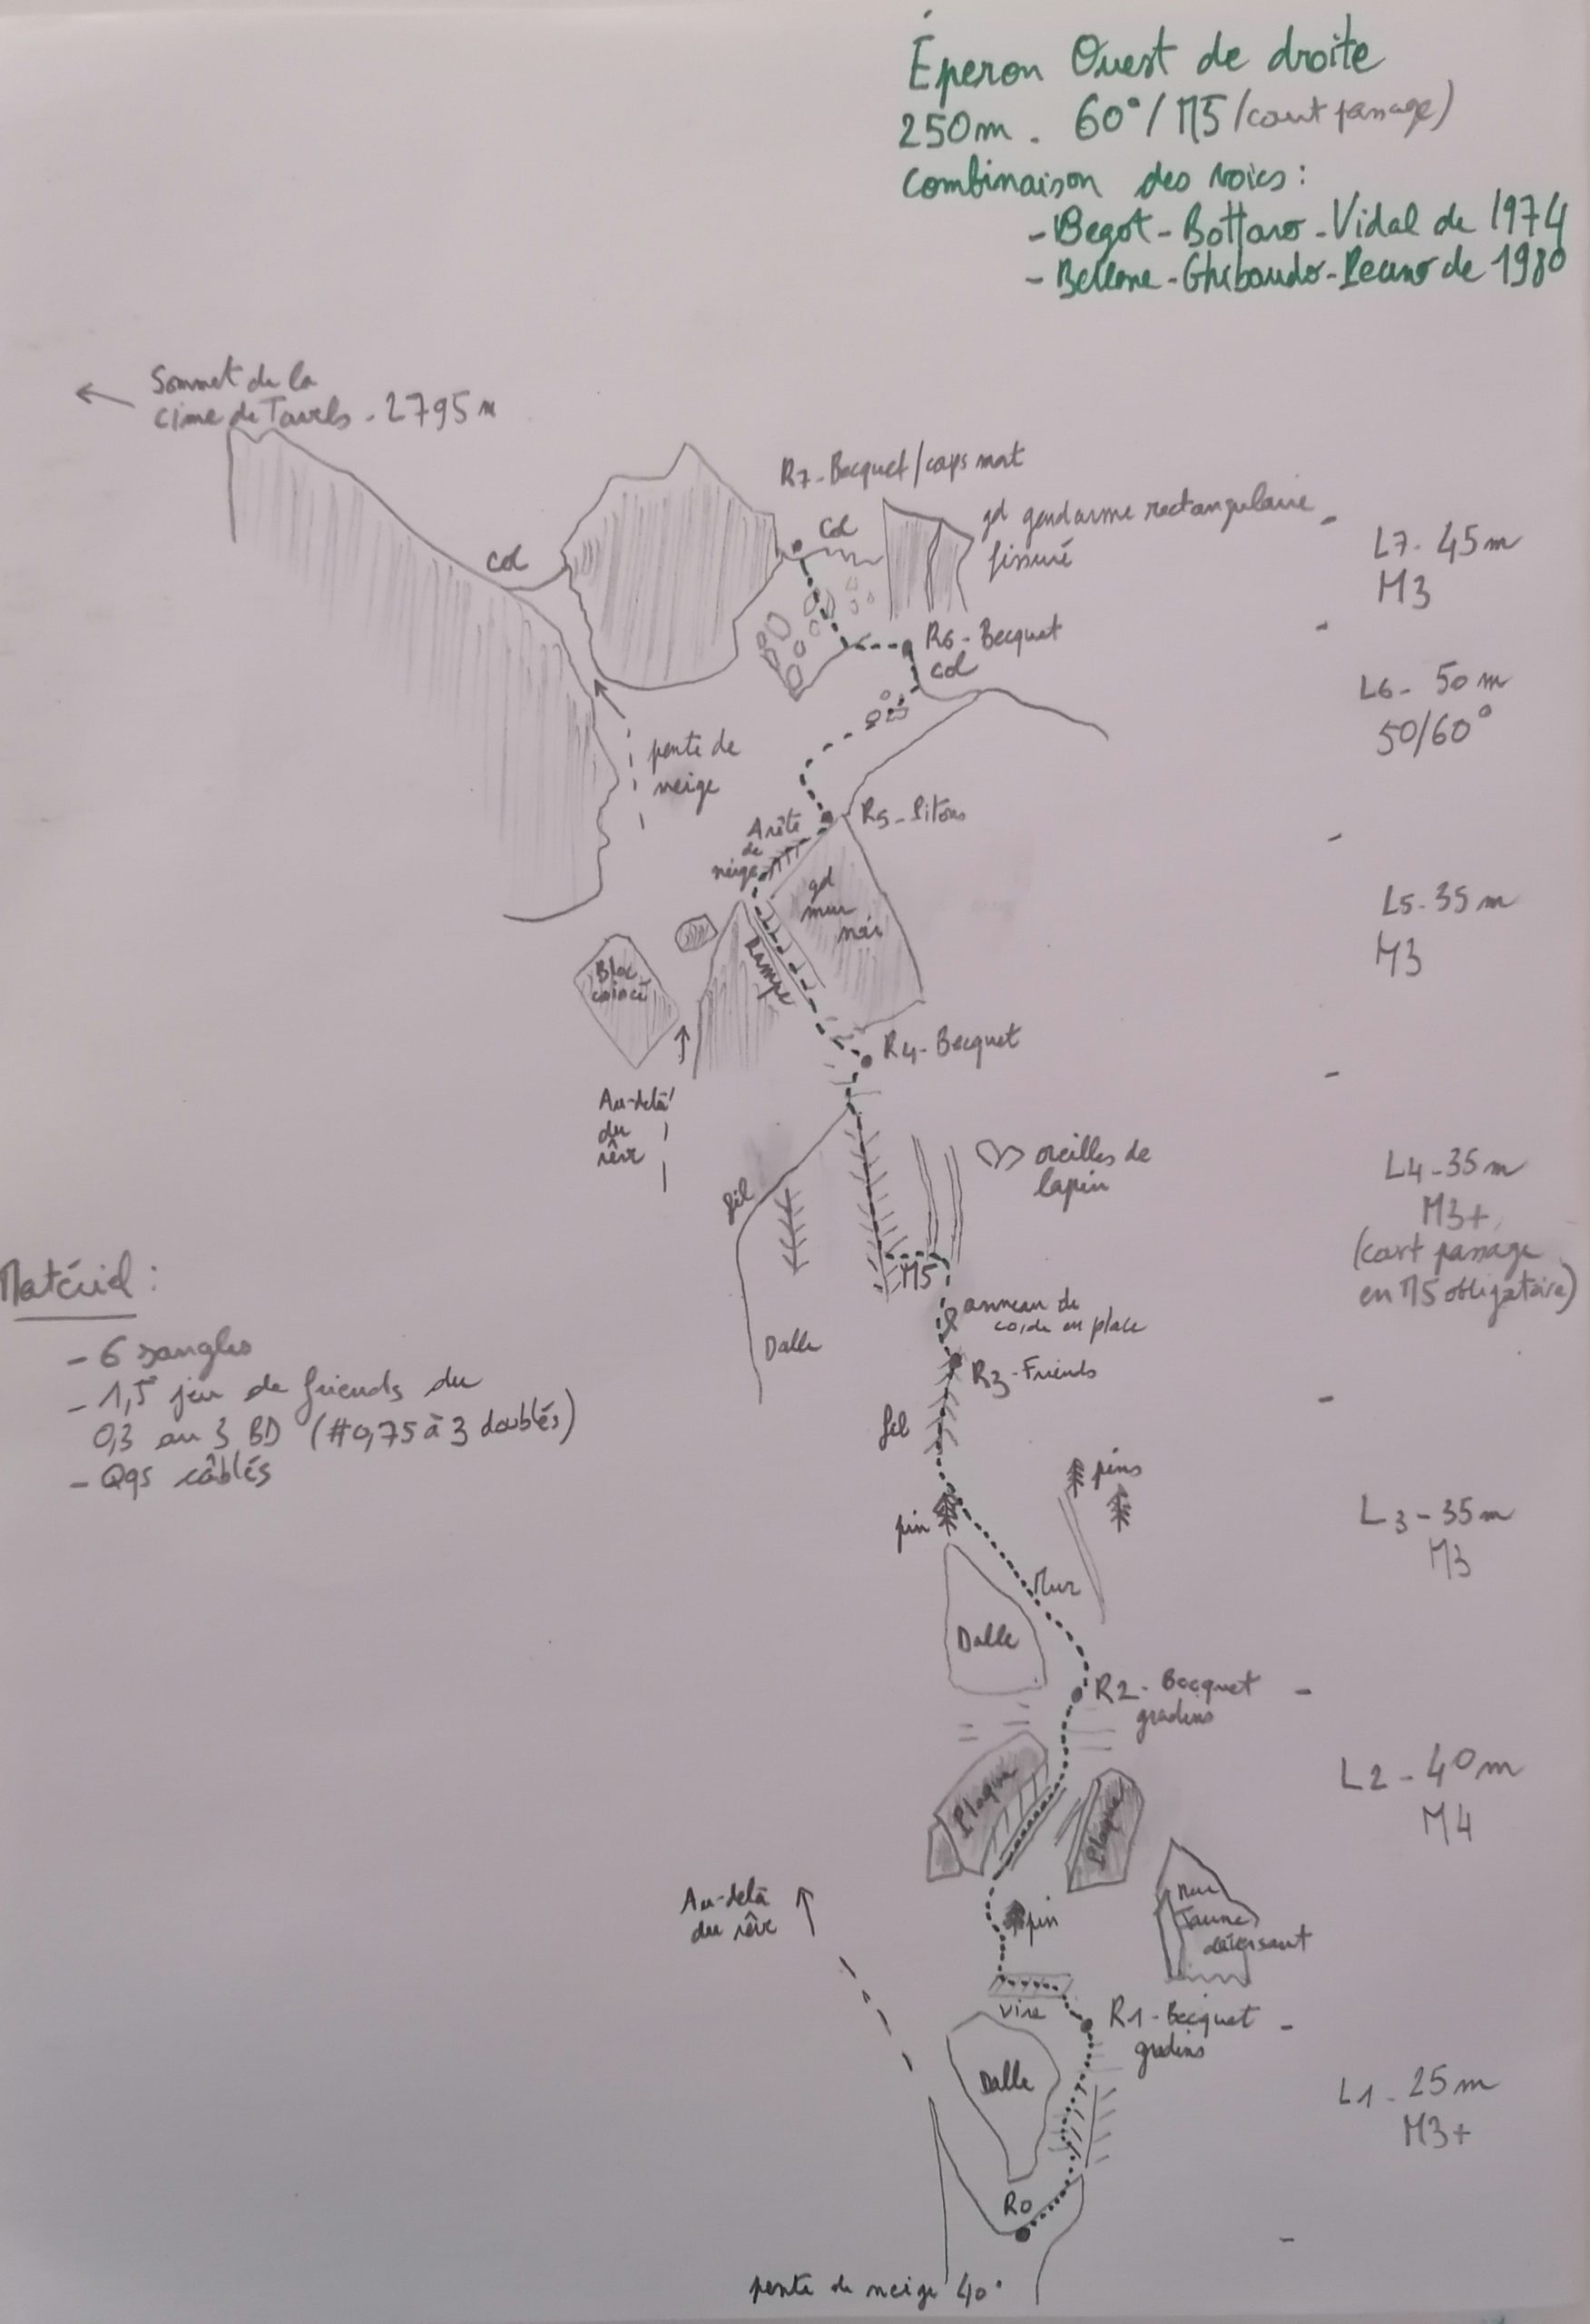 Éperon Ouest de droite
250m. 60°/M5/court passage)
Combinaison des voies:
- Begot-Bottaro-Vidal de 1974
- Bellone-Ghibaudo- de 1980
Sommet de la
cime de - 2795m
R7-Becquet/caps mont
Col
gd gendarme rectangulaire
fissuré
L7. 45m
M3
Col
R6-Becquet
col
L6- 50m
50/60°
pente de
neige
Arête
de
neige
R5-Pitons
gd
mur
noir
Rampe
L5.35m
M3
Bloc
coincé
R4-Becquet
Au-delà
du
rêve
oreilles de
lapin
fil
L4-35m
M3+
(court passage
en M5 obligatoire)
M5
anneau de
corde en place
Dalle
R3-Friends
Matériel:
- 6 sangles
- 1,5 jeu de friends du
0,3 au 3 BD (#0,75 à 3 doublés)
- Qqs câblés
fil
pins
pin
L3-35m
M3
Mur
Dalle
R2-Becquet
gradins
L2-40m
M4
Plaque
Plaque
Au-delà
du rêve
pin
mur
Jaune
déversant
vire
R1-Becquet
gradins
Dalle
L1-25m
M3+
R0
pente de neige 40°